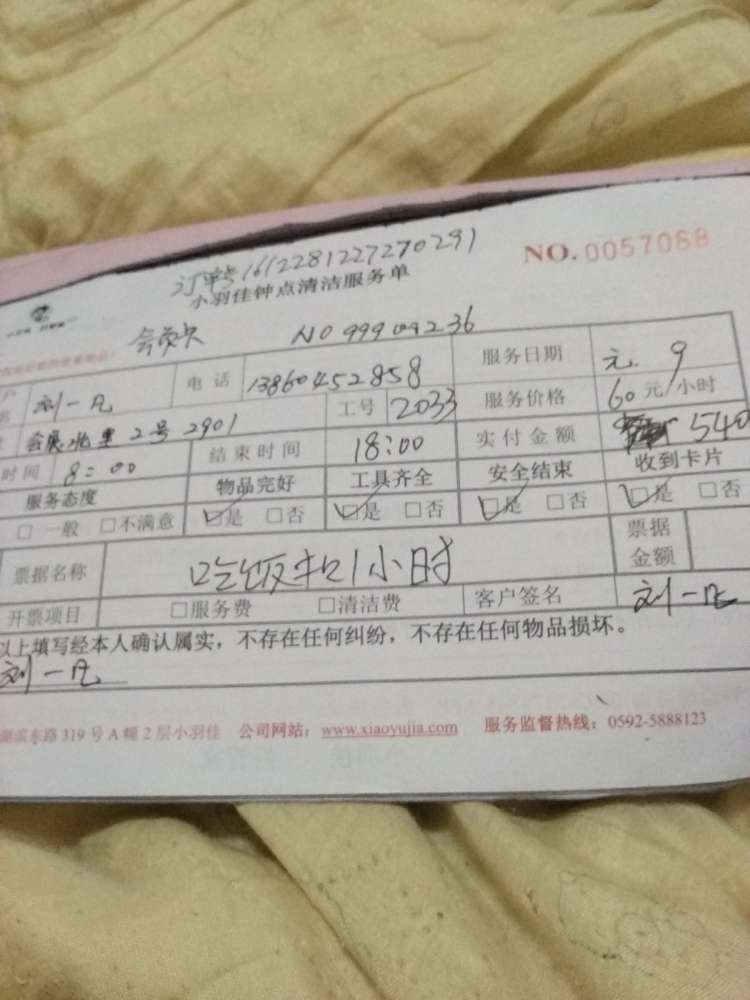 订单号1612281227270291
小羽佳钟点清洁服务单 NO.0057068
会员卡 NO 99909236
刘一凡 电话 13860452858 服务日期 元.9
会展北里2号2901 工号 2033 服务价格 60元/小时
时间 8:00 结束时间 18:00 实付金额 540
服务态度 物品完好 工具齐全 安全结束 收到卡片
□一般 □不满意 ☑是 □否 ☑是 □否 ☑是 □否 ☑是 □否
票据名称 吃饭扣1小时 票据金额
开票项目 □服务费 □清洁费 客户签名 刘一凡
以上填写经本人确认属实，不存在任何纠纷，不存在任何物品损坏。
刘一凡
湖滨东路319号A幢2层小羽佳 公司网站：www.xiaoyujia.com 服务监督热线：0592-5888123